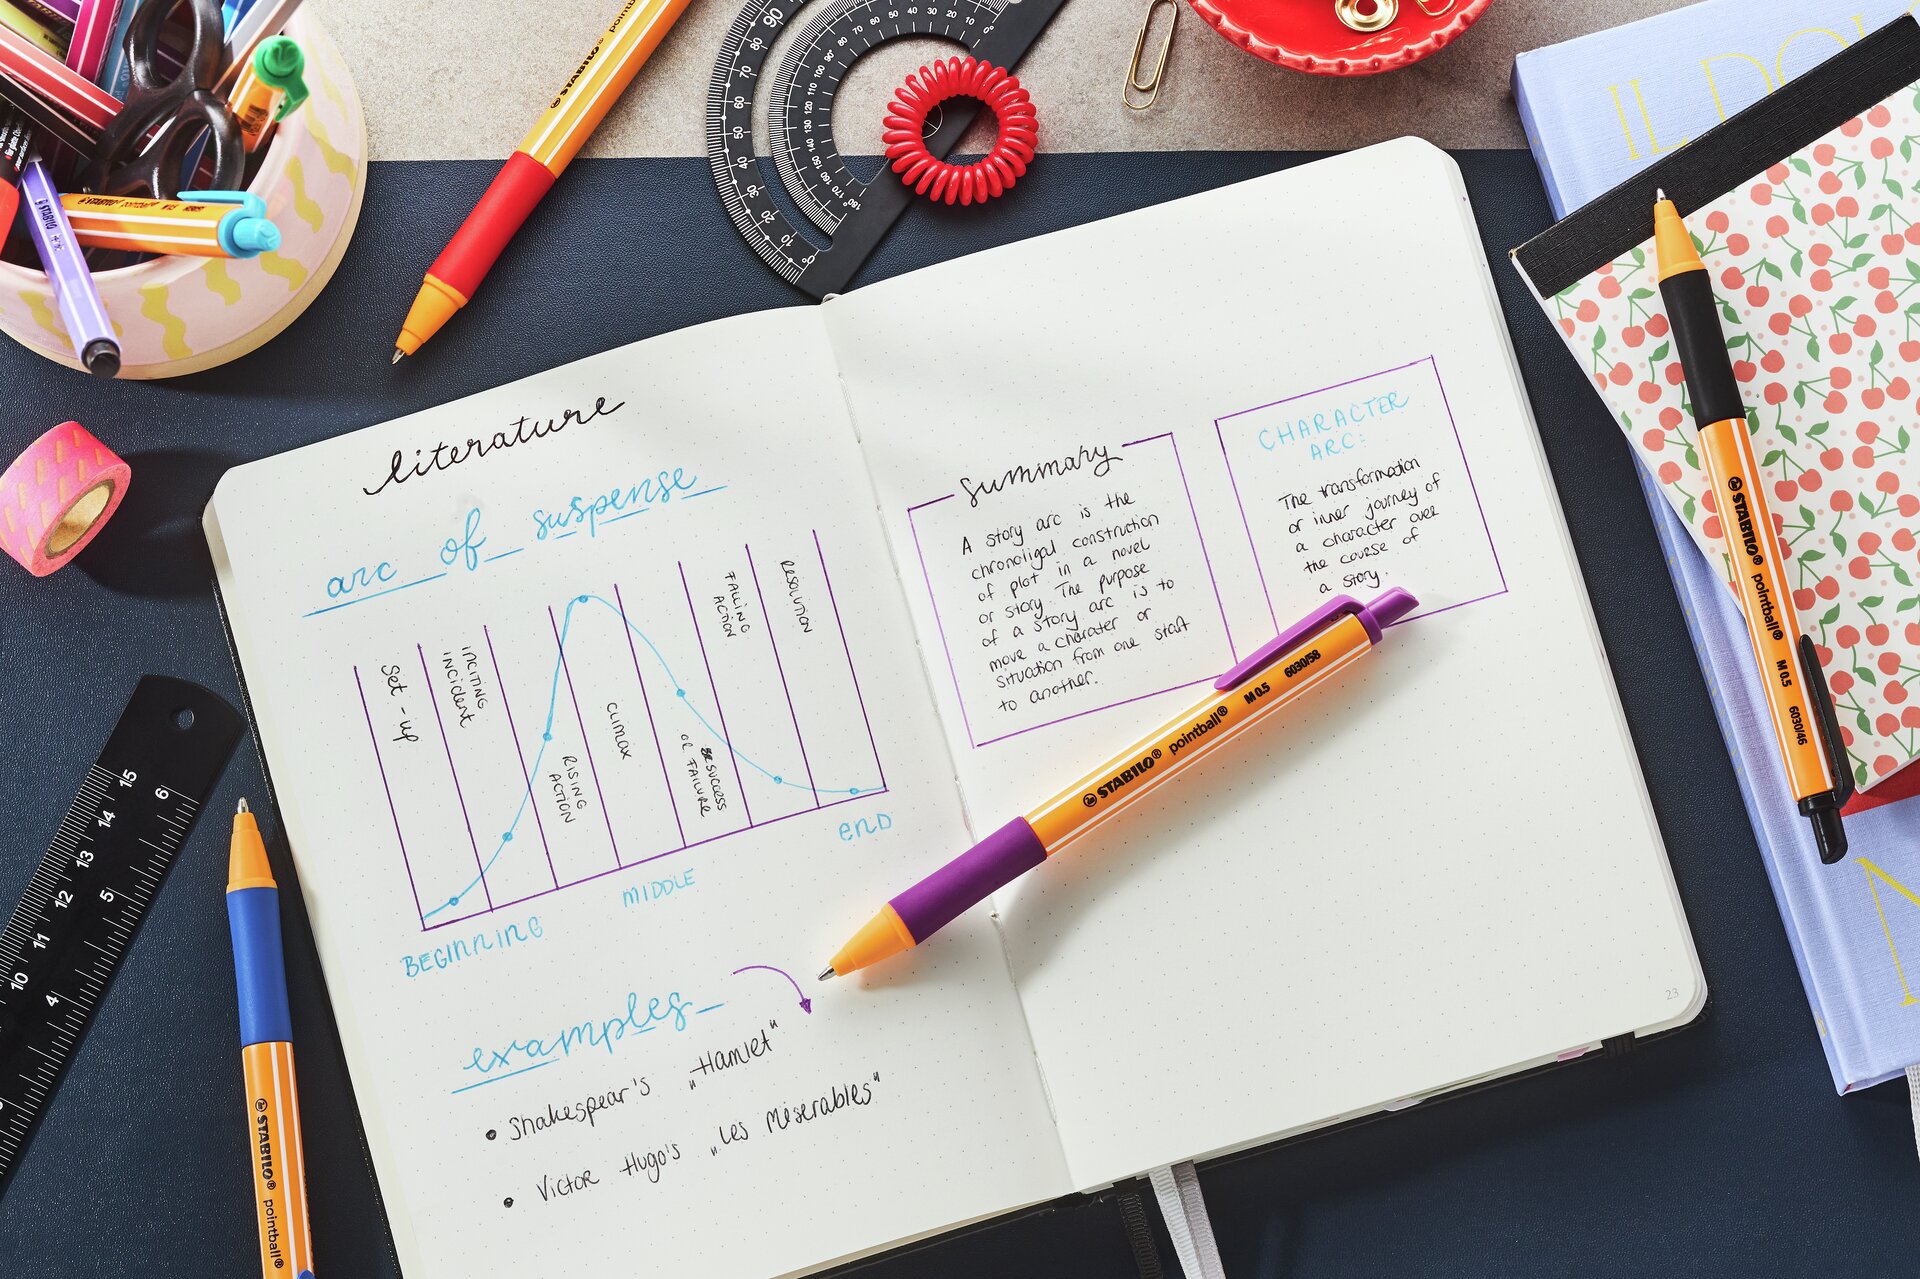 literature
arc of suspense
Set-up
INCITING
INCIDENT
RISING
ACTION
CLIMAX
SUCCESS
OR FAILURE
FALLING
ACTION
RESOLUTION
BEGINNING
MIDDLE
END
examples
• Shakespear's „Hamlet"
• Victor Hugo's „Les Miserables"
summary
A story arc is the
chronoligal construction
of plot in a novel
or story. The purpose
of a story arc is to
move a charater or
situation from one start
to another.
CHARACTER
ARC:
The transformation
or inner journey of
a character over
the course of
a story.
23
STABILO® pointball® M 0.5 6030/58
STABILO® pointball® M 0.5 6030/46
STABILO® pointball®
STABILO
pointball
IL DO
15
14
13
12
11
10
6
5
4